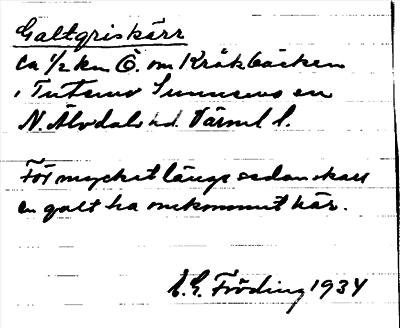 Galtgriskärr
Ca 1/2 km Ö. om Kråkbäcken
i Sunnemo sn
N. Älvdals hd. Värml l.
För mycket länge sedan skall
en galt ha omkommit här.
E. G. Fröding 1934